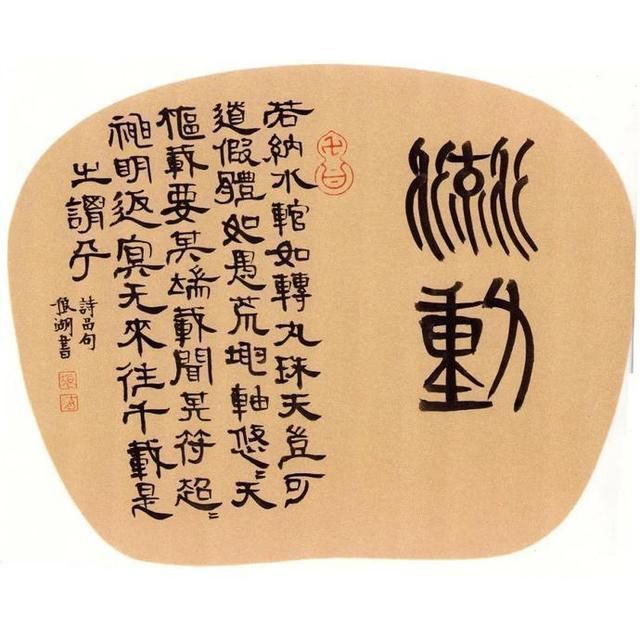 流動
若納水輨如轉丸珠天豈可
道假體如愚荒坤軸悠〻天
樞載要其端載聞其符超〻
神明返冥无來往千載是
之謂乎
詩品句
湖書